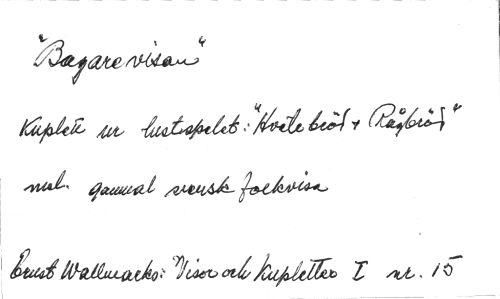 "Bagarevisan"
Kuplett ur lustspelet: "Hvetebröd & Rågbröd"
mel. gammal svensk folkvisa
Ernst Wallmarks: Visor och Kupletter I nr. 15